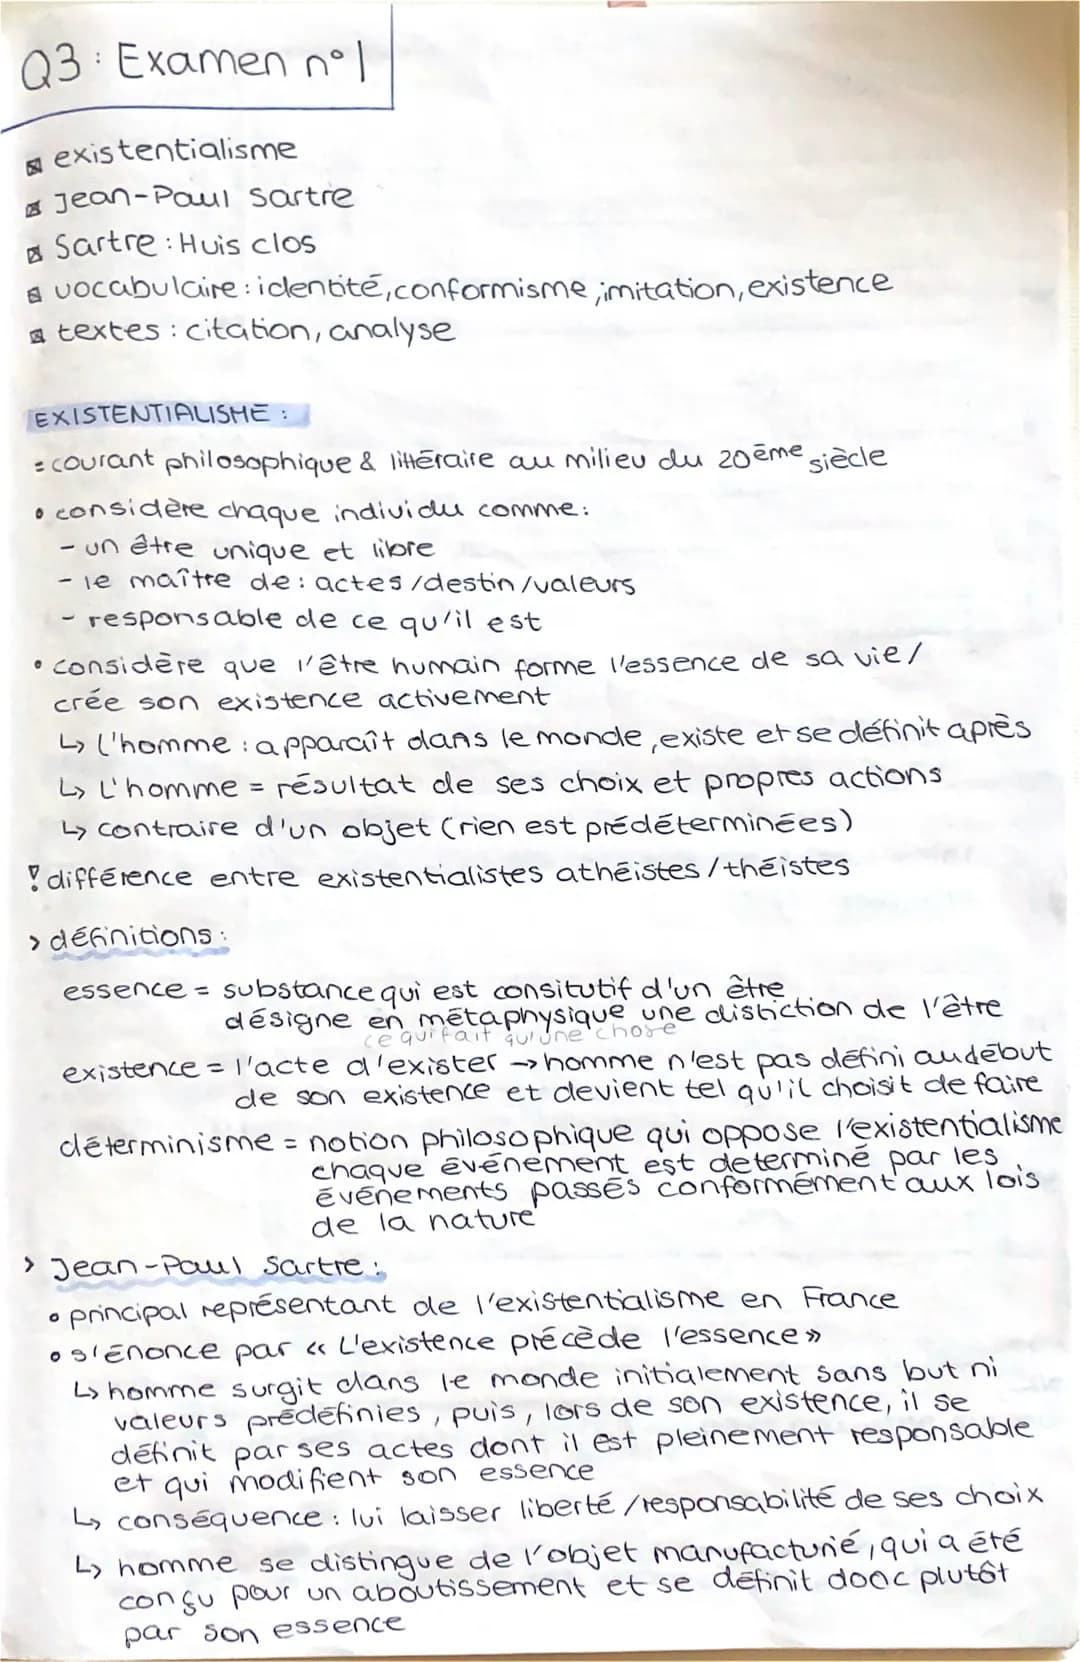 Q3 : Examen n°1
existentialisme
Jean-Paul Sartre
Sartre : Huis clos
vocabulaire : identité, conformisme, imitation, existence
textes : citation, analyse
EXISTENTIALISME :
= courant philosophique & littéraire au milieu du 20ème siècle
• considère chaque individu comme :
- un être unique et libre
- le maître de : actes /destin /valeurs
- responsable de ce qu'il est
• considère que l'être humain forme l'essence de sa vie/
crée son existence activement
↳ l'homme : apparaît dans le monde, existe et se définit après
↳ L'homme = résultat de ses choix et propres actions
↳ contraire d'un objet (rien est prédéterminées)
! différence entre existentialistes athéistes / théistes
> définitions :
essence = substance qui est consitutif d'un être
désigne en métaphysique une distiction de l'être
ce qui fait qu'une chose
existence = l'acte d'exister → homme n'est pas défini au début
de son existence et devient tel qu'il choisit de faire
déterminisme = notion philosophique qui oppose l'existentialisme
chaque événement est determiné par les
événements passés conformément aux lois
de la nature
> Jean-Paul Sartre :
• principal représentant de l'existentialisme en France
• s'énonce par « L'existence précède l'essence »
↳ homme surgit dans le monde initialement sans but ni
valeurs prédéfinies, puis, lors de son existence, il se
définit par ses actes dont il est pleinement responsable
et qui modifient son essence
↳ conséquence : lui laisser liberté /responsabilité de ses choix
↳ homme se distingue de l'objet manufacturié, qui a été
conçu pour un aboutissement et se définit donc plutôt
par son essence